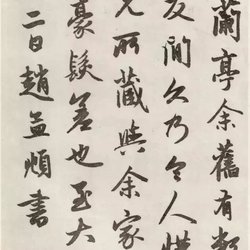 蘭亭余舊有數
友閒久乃令人惜
兄所藏與余家
豪髮差也至大
二日趙孟頫書